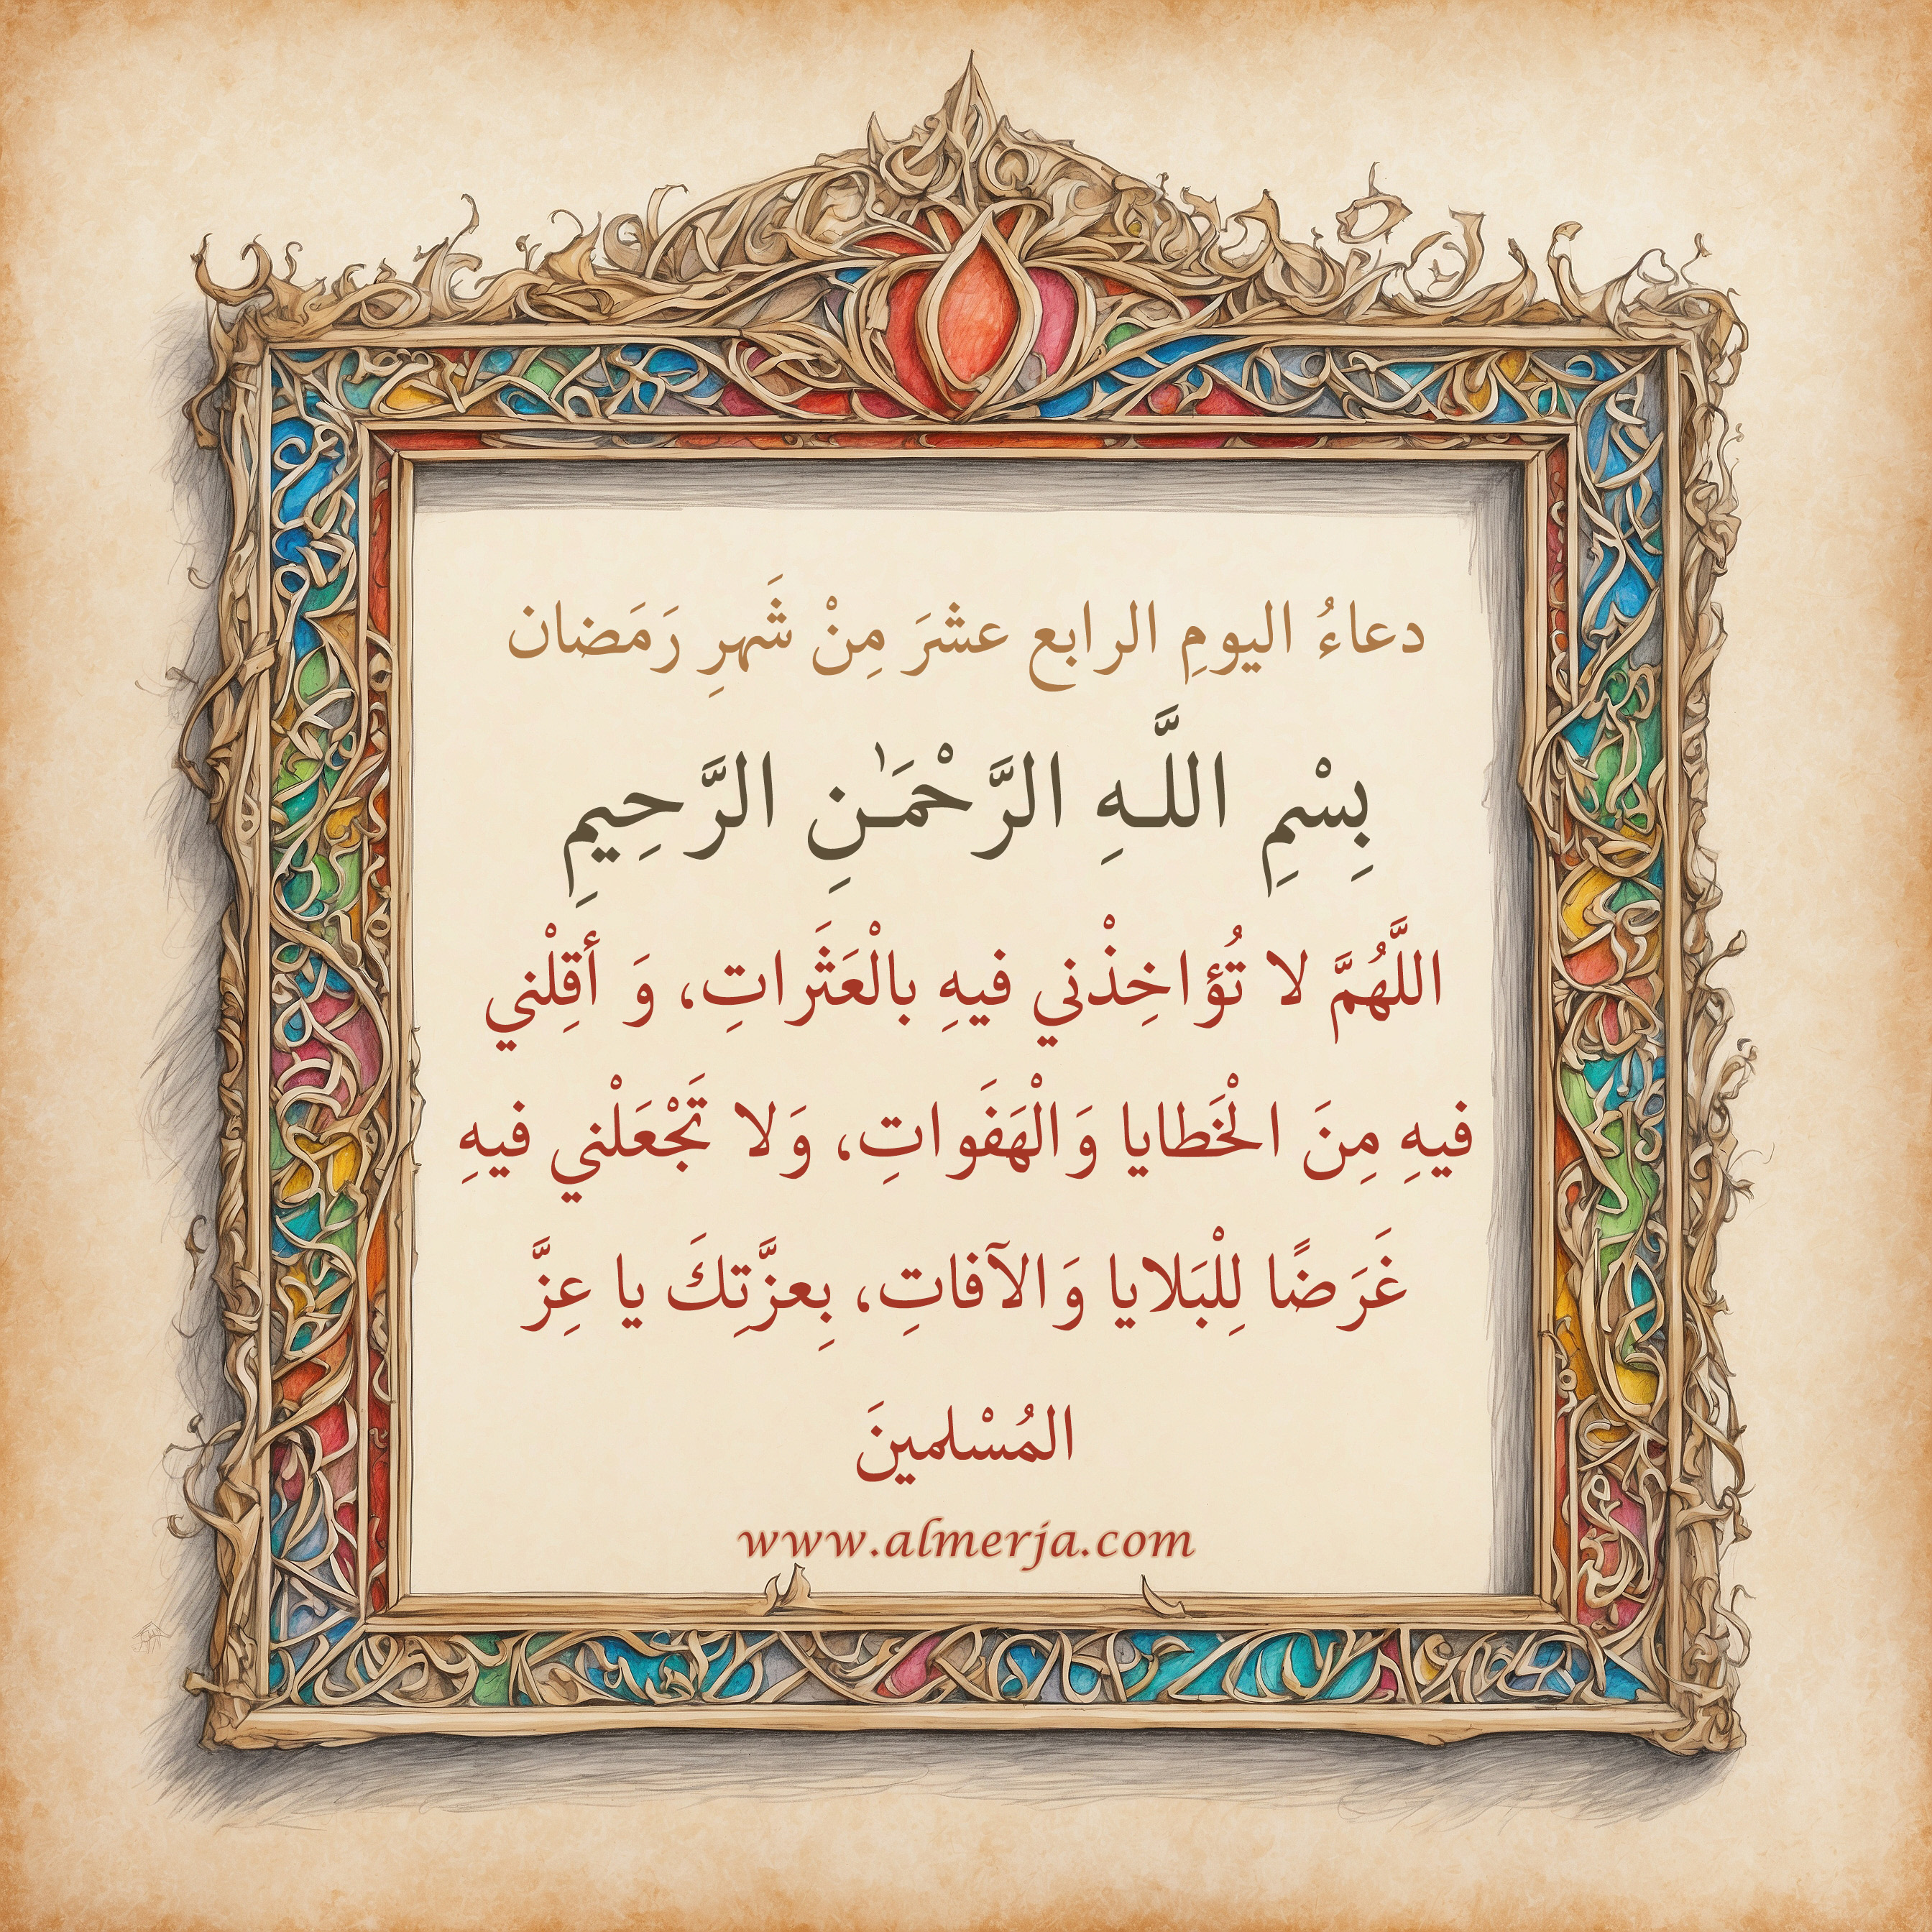 دعاءُ اليومِ الرابع عشرَ مِنْ شَهرِ رَمَضان
بِسْمِ اللَّـهِ الرَّحْمَـٰنِ الرَّحِيمِ
اللَّهُمَّ لا تُؤاخِذْني فيهِ بالْعَثَراتِ، وَ أقِلْني
فيهِ مِنَ الْخَطايا وَالْهَفَواتِ، وَلا تَجْعَلْني فيهِ
غَرَضًا لِلْبَلايا وَالآفاتِ، بِعزَّتِكَ يا عِزَّ
المُسْلمينَ
www.almerja.com